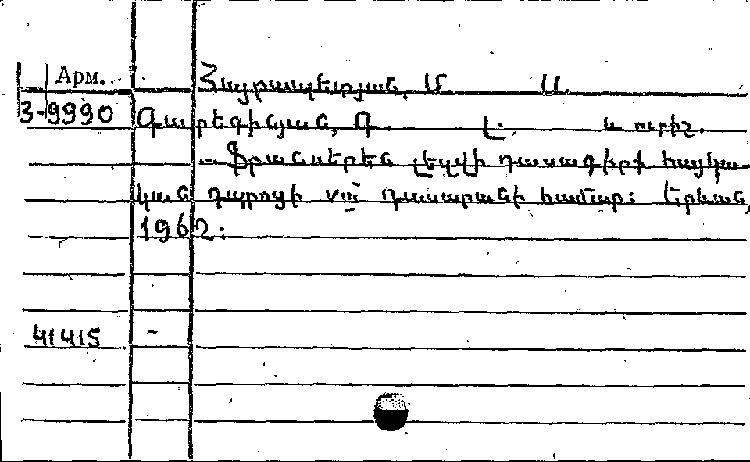 Арм. Հայրապետյան, Մ. Ա.
3-9990 Գարեգինյան, Գ. Լ. և ուրիշ.
— Ֆրանսերեն լեզվի դասագիրք հայկա-
կան դպրոցի դասարանի համար: Երևան,
1962.
41415 -